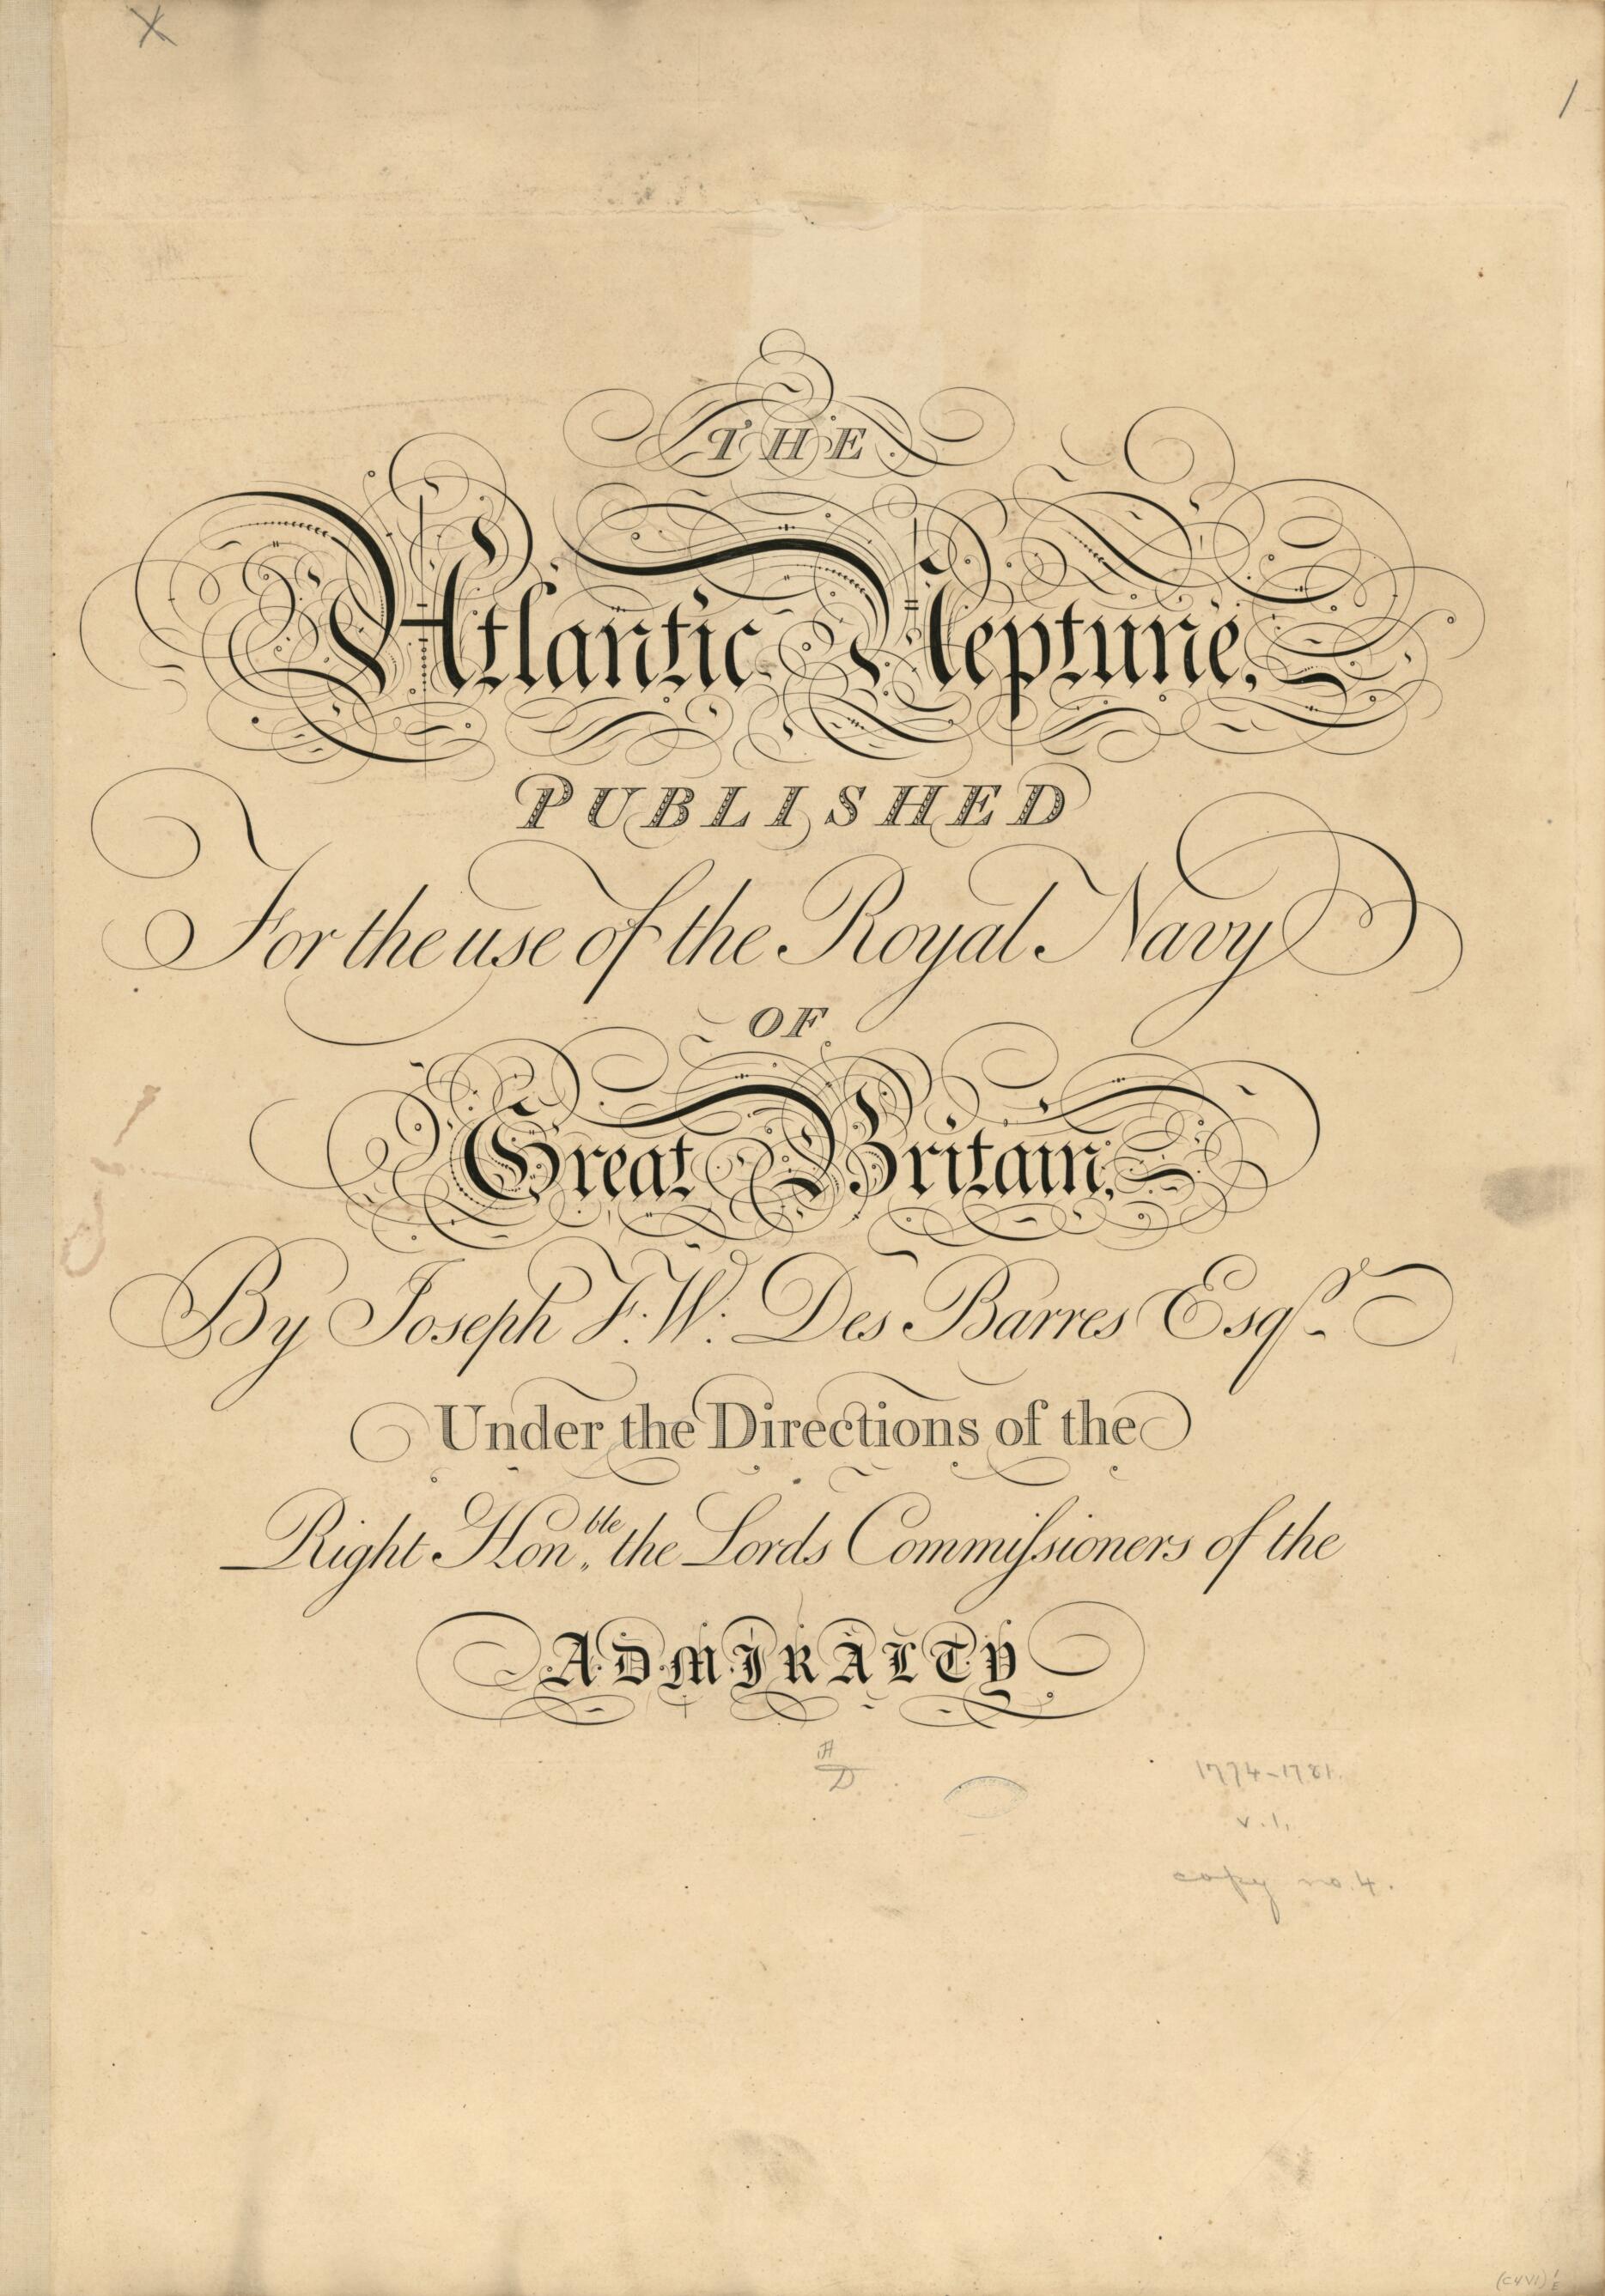 X
/
THE
Atlantic Neptune,
PUBLISHED
For the use of the Royal Navy
OF
Great Britain,
By Joseph F: W: Des Barres Esqr.
Under the Directions of the
Right Honble. the Lords Commiſsioners of the
ADMIRALTY
A
D
1774-1781.
v.1.
copy no. 4.